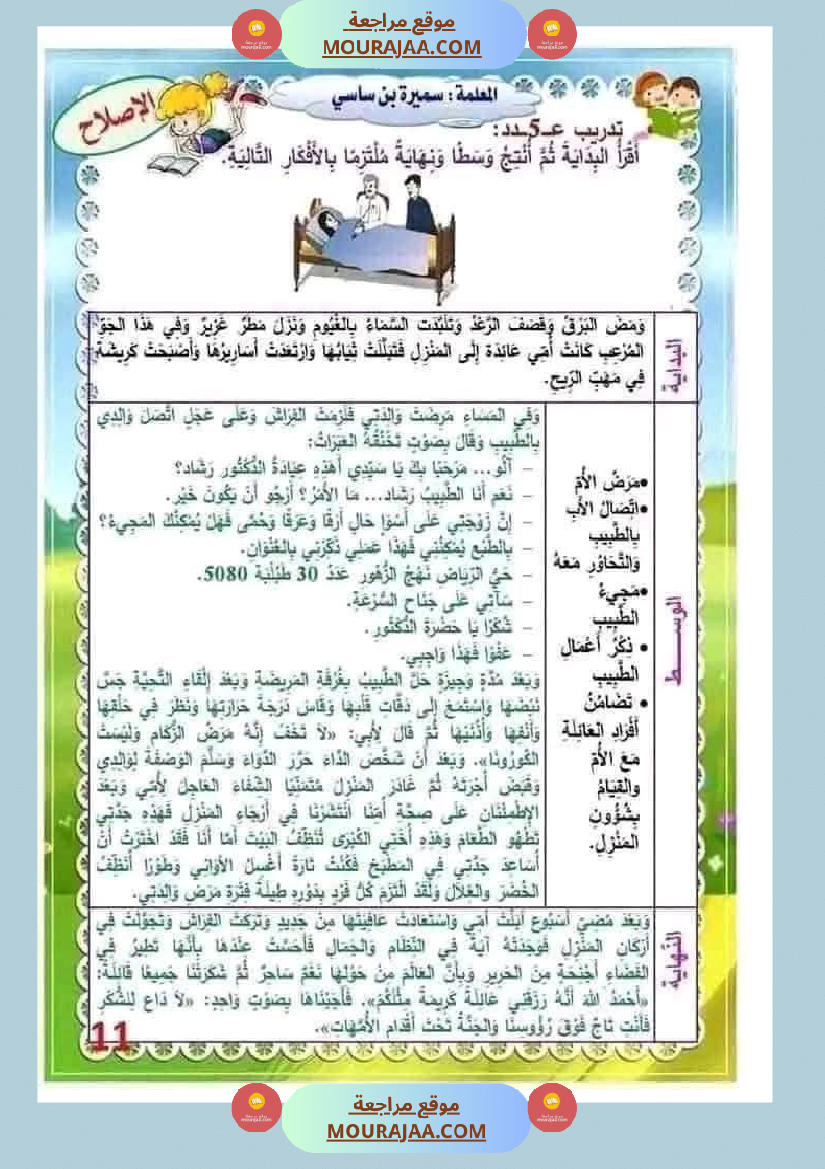 موقع مراجعة
MOURAJAA.COM
المعلمة : سميرة بن ساسي
الإصلاح
تدريب عـ5ـدد :
أَقْرَأُ البِدَايَةَ ثُمَّ أُنْتِجُ وَسَطًا وَنِهَايَةً مُلْتَزِمًا بِالأَفْكَارِ التَّالِيَةِ.
البداية
وَمَضَ البَرْقُ وَقَصَفَ الرَّعْدُ وَتَلَبَّدَت السَّمَاءُ بِالغُيُومِ وَنَزَلَ مَطَرٌ غَزِيرٌ وَفِي هَذَا الجَوِّ
المُرْعِبِ كَانَتْ أُمِّي عَائِدَة إِلَى المَنْزِلِ فَتَبَلَّلَتْ ثِيَابُهَا وَارْتَعَدَتْ أَسَارِيرُهَا وَأَصْبَحَتْ كَرِيشَة
فِي مَهَبِّ الرِّيحِ.
الوسـط
•مَرَضُ الأُمِّ
•اتِّصَالُ الأَبِ
بِالطَّبِيبِ
وَالتَّحَاوُرِ مَعَهُ
•مَجِيءُ
الطَّبِيبِ
• ذِكْرُ أَعْمَالِ
الطَّبِيبِ
• تَضَامُنُ
أَفْرَادِ العَائِلَةِ
مَعَ الأُمِّ
والقِيَامُ
بِشُؤُونِ
المَنْزِلِ.
وَفِي المَسَاءِ مَرِضَتْ وَالِدَتِي فَلَزِمَتْ الفِرَاشَ وَعَلَى عَجَلٍ اتَّصَلَ وَالِدِي
بِالطَّبِيبِ وَقَالَ بِصَوْتٍ تَخْنُقُهُ العَبَرَاتُ:
– آلُو... مَرْحَبًا بِكَ يَا سَيِّدِي أَهَذِهِ عِيَادَةُ الدُّكْتُور رَشَاد؟
– نَعَم أَنَا الطَّبِيبُ رَشَاد... مَا الأَمْرُ؟ أَرْجُو أَنْ يَكُونَ خَيْر.
– إِنَّ زَوْجَتِي عَلَى أَسْوَإِ حَالٍ أَرَقًا وَعَرَقًا وَحُمَّى فَهَلْ يُمْكِنُكَ المَجِيءُ؟
– بِالطَّبْعِ يُمْكِنُنِي فَهَذَا عَمَلِي ذَكِّرْنِي بِالعُنْوَانِ.
– حَيُّ الرِّيَاض نَهْجُ الزُّهُور عَدَدُ 30 طَبُلْبَة 5080.
– سَآتِي عَلَى جَنَاحِ السُّرْعَةِ.
– شُكْرًا يَا حَضْرَةَ الدُّكْتُورِ.
– عَفْوًا فَهَذَا وَاجِبِي.
وَبَعْدَ مُدَّةٍ وَجِيزَةٍ حَلَّ الطَّبِيبُ بِغُرْفَةِ المَرِيضَةِ وَبَعْدَ إِلْقَاءِ التَّحِيَّةِ جَسَّ
نَبْضَهَا وَاسْتَمَعَ إِلَى دَقَّاتِ قَلْبِهَا وَقَاسَ دَرَجَةَ حَرَارَتِهَا وَنَظَرَ فِي حَلْقِهَا
وَأَنْفِهَا وَأُذُنَيْهَا ثُمَّ قَالَ لِأَبِي: «لاَ تَخَفْ إِنَّهُ مَرَضُ الزُّكَامِ وَلَيْسَتْ
الكُورُونَا». وَبَعْدَ أَنْ شَخَّصَ الدَّاءَ حَرَّرَ الدَّوَاءَ وَسَلَّمَ الوَصْفَةَ لِوَالِدِي
وَقَبَضَ أُجْرَتَهُ ثُمَّ غَادَرَ المَنْزِلَ مُتَمَنِّيًا الشِّفَاءَ العَاجِلَ لِأُمِّي وَبَعْدَ
الإِطْمِئْنَانِ عَلَى صِحَّةِ أُمِّنَا انْتَشَرْنَا فِي أَرْجَاءِ المَنْزِلِ فَهَذِهِ جَدَّتِي
تَطْهُو الطَّعَامَ وَهَذِهِ أُخْتِي الكُبْرَى تُنَظِّفُ البَيْتَ أَمَّا أَنَا فَقَدْ اخْتَرْتُ أَنْ
أُسَاعِدَ جَدَّتِي فِي المَطْبَخِ فَكُنْتُ تَارَةً أَغْسِلُ الأَوَانِي وَطَوْرًا أُنَظِّفُ
الخُضَرَ والغِلاَلَ وَلَقَدْ الْتَزَمَ كُلُّ فَرْدٍ بِدَوْرِهِ طِيلَةَ فَتْرَةِ مَرَضِ وَالِدَتِي.
النهاية
وَبَعْدَ مُضِيِّ أُسْبُوعٍ أَبَلَّتْ أُمِّي وَاسْتَعَادَتْ عَافِيَتَهَا مِنْ جَدِيدٍ وَتَرَكَتْ الفِرَاشَ وَتَجَوَّلَتْ فِي
أَرْكَانِ المَنْزِلِ فَوَجَدَتْهُ آيَةً فِي النِّظَامِ وَالجَمَالِ فَأَحَسَّتْ عِنْدَهَا بِأَنَّهَا تَطِيرُ فِي
الفَضَاءِ أَجْنِحَة مِنَ الحَرِيرِ وَبِأَنَّ العَالَمَ مِنْ حَوْلِهَا نَغَمٌ سَاحِرٌ ثُمَّ شَكَرَتْنَا جَمِيعًا قَائِلَةً:
«أَحْمَدُ اللهَ أَنَّهُ رَزَقَنِي عَائِلَةً كَرِيمَةً مِثْلَكُمْ». فَأَجَبْنَاهَا بِصَوْتٍ وَاحِدٍ: «لاَ دَاعٍ لِلشُّكْرِ
فَأَنْتِ تَاجٌ فَوْقَ رُؤُوسِنَا وَالجَنَّةُ تَحْتَ أَقْدَامِ الأُمَّهَاتِ».
11
موقع مراجعة
MOURAJAA.COM